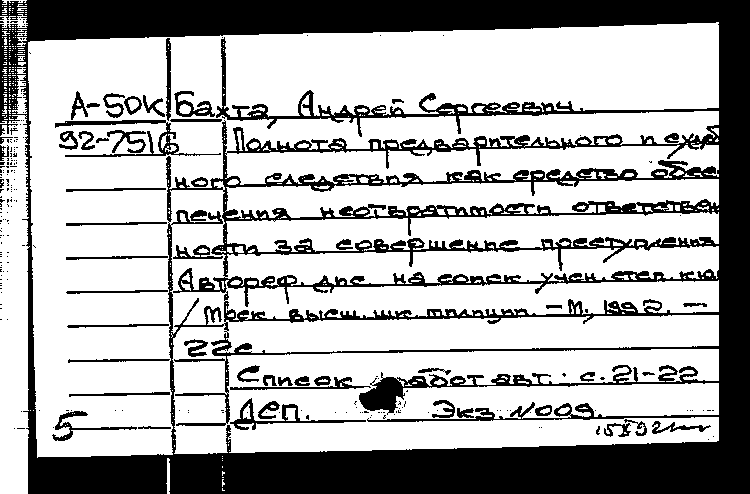 А-5DK Бахта, Андрей Сергеевич.
92-7516 Полнота предварительного и судеб
ного следствия как средство обес
печения неотвратимости ответствен
ности за совершение преступления
Автореф. дис. на соиск. учен. степ. кюн
/Моск. высш. шк. милиции. - М., 1992. -
22с.
Список работ авт.: с. 21-22
ДСП. Экз. №009.
5